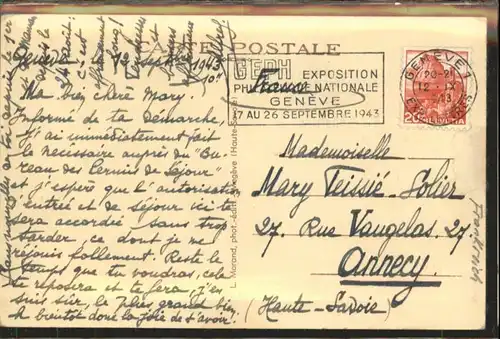 CARTE POSTALE
Genève, 12 septembre 1943
Ma bien chère Mary.
Informé de ta démarche,
j'ai immédiatement fait
le nécessaire auprès du "Bu-
reau des Permis de Séjour"
et j'espère que l'autorisation
d'entrée et de séjour ici te
sera accordée sans trop
tarder, ce dont je me
réjouis follement. Reste le
temps que tu voudras, cela
te reposera et te fera, j'en
suis sûr, le plus grand bien
À bientôt donc la joie de t'avoir.
L. Morand, phot.-édit. (Haute-Savoie)
GEPH EXPOSITION
PHILATELIQUE NATIONALE
GENEVE
17 AU 26 SEPTEMBRE 1943
France
GENEVE 1
20-21
12. IX
HELVETIA
20
Mademoiselle
Mary Teissié-Solier
27, Rue Vaugelas. 27.
Annecy.
(Haute-Savoie)
Frankreich